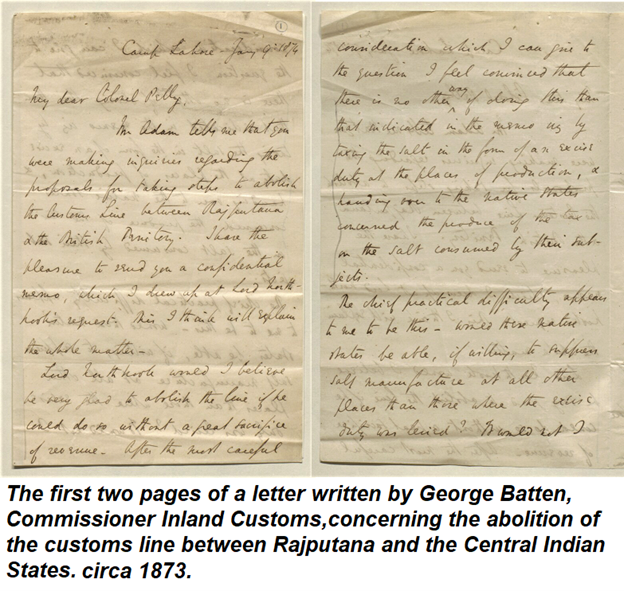 1
Camp Lahore Jany 9th 1874
My dear Colonel Pelly,
Mr Adam tells me that you
were making inquiries regarding the
proposals for taking steps to abolish
the Customs Line between Rajputana
& the British Territory. I have the
pleasure to send you a confidential
memo, which I drew up at Lord North-
brook's request. This I think will explain
the whole matter—
Lord Northbrook would I believe
be very glad to abolish the line if he
could do so without a great sacrifice
of revenue— After the most careful
consideration which I can give to
the question I feel convinced that
there is no other way of doing this than
that indicated in the memo viz by
taxing the salt in the form of an excise
duty at the places of production, &
handing over to the native states
concerned the produce of the tax
on the salt consumed by their sub-
jects.
The chief practical difficulty appears
to me to be this— would these native
states be able, if willing, to suppress
salt manufacture at all other
places than those where the excise
duty was levied? It would not I
The first two pages of a letter written by George Batten,
Commissioner Inland Customs,concerning the abolition of
the customs line between Rajputana and the Central Indian
States. circa 1873.